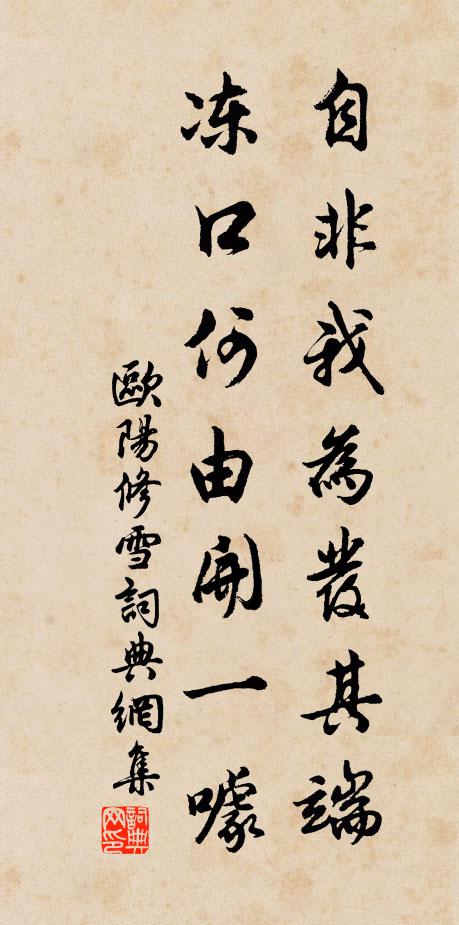 自非我為發其端
凍口何由開一噱
歐陽修雪詞典網集
詞典网印